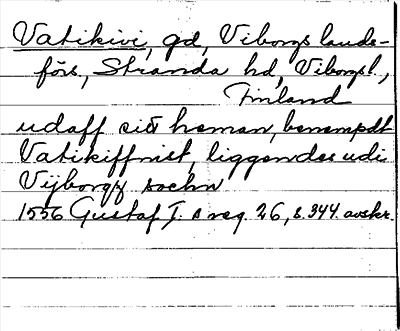 Vatikivi, gd, Viborgs lands-
förs, Stranda hd, Viborgs l.,
Finland
udaff eit heman, benempdt
Vatikiffnist, liggendes udi
Vijborgz sochn
1556 Gustaf I. s reg. 26, s. 344. avskr.